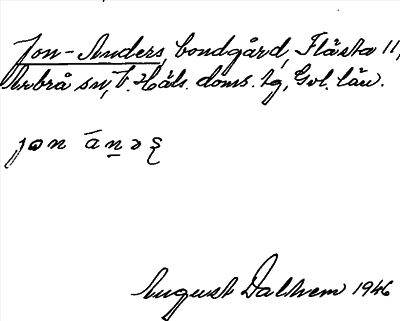 Jon-Anders, bondgård, Flästa 11,
Arbrå sn, V. Häls. doms. tg, Gvl. län.
jon ánəʂ
August Dalhem 1946